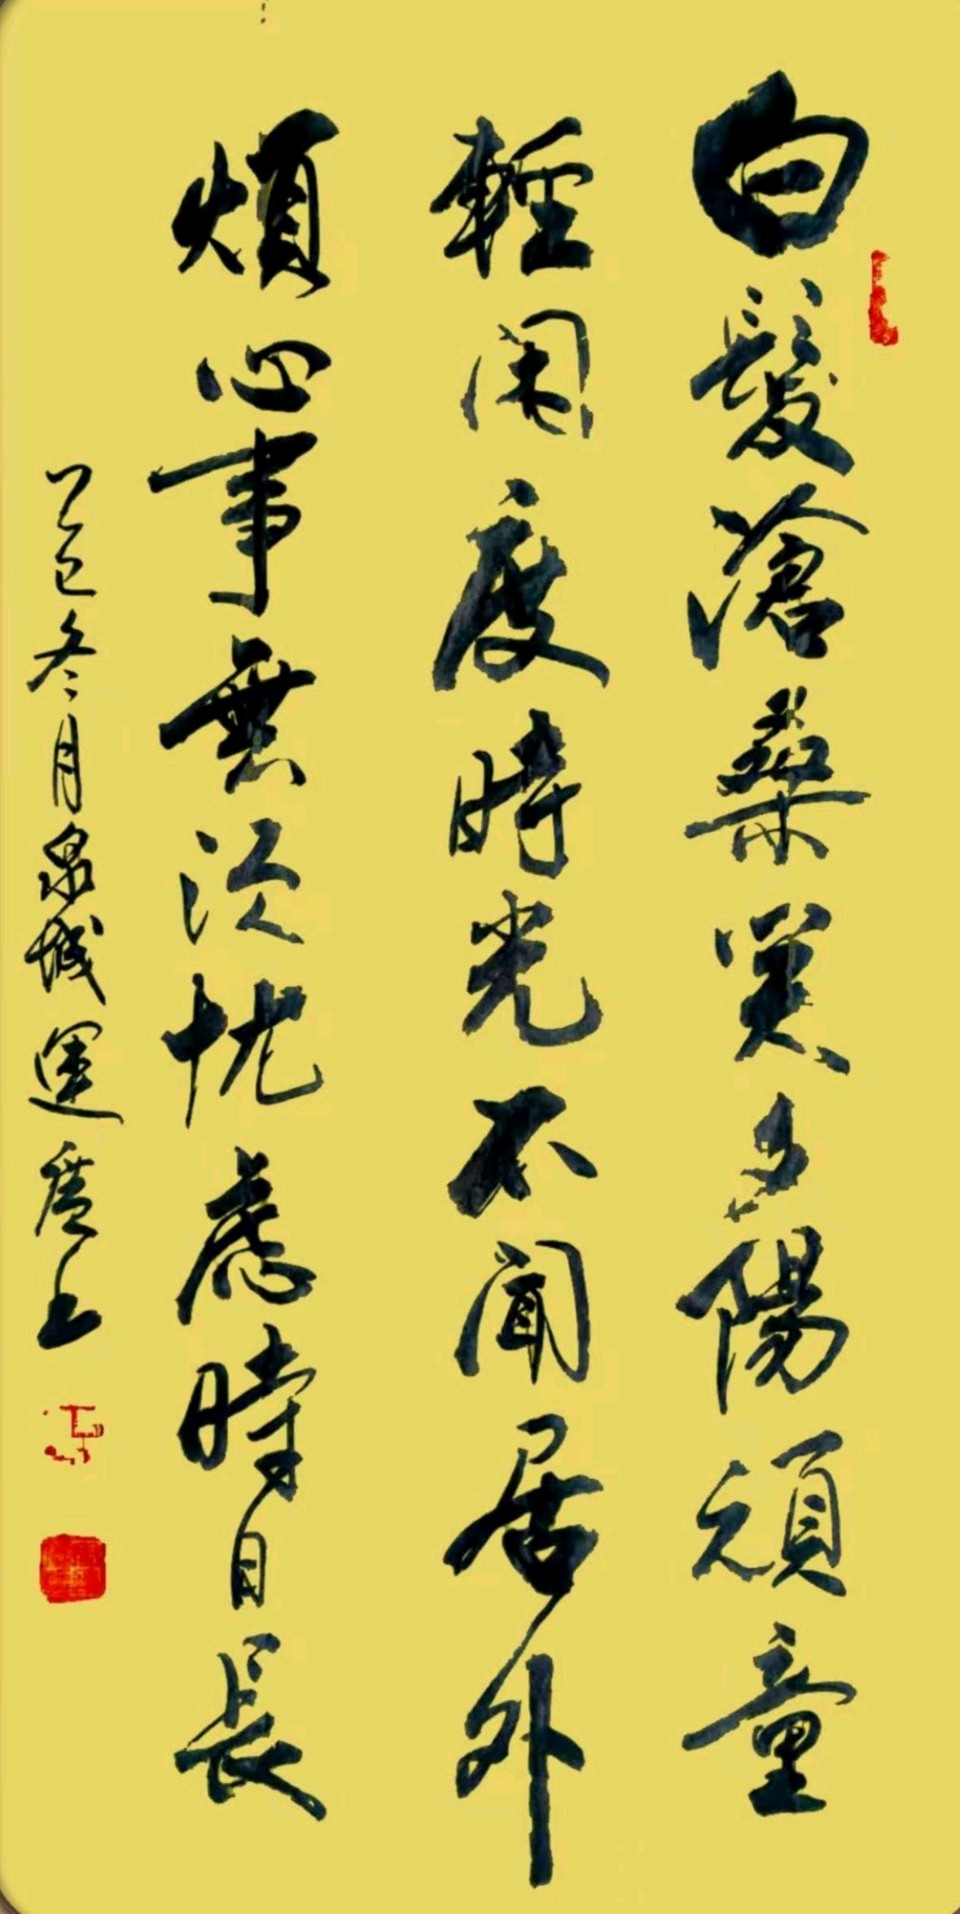 白髮滄桑笑夕陽頑童
輕閑度時光不聞居外
煩心事無須忧慮時日長
乙巳冬月泉城運廣书